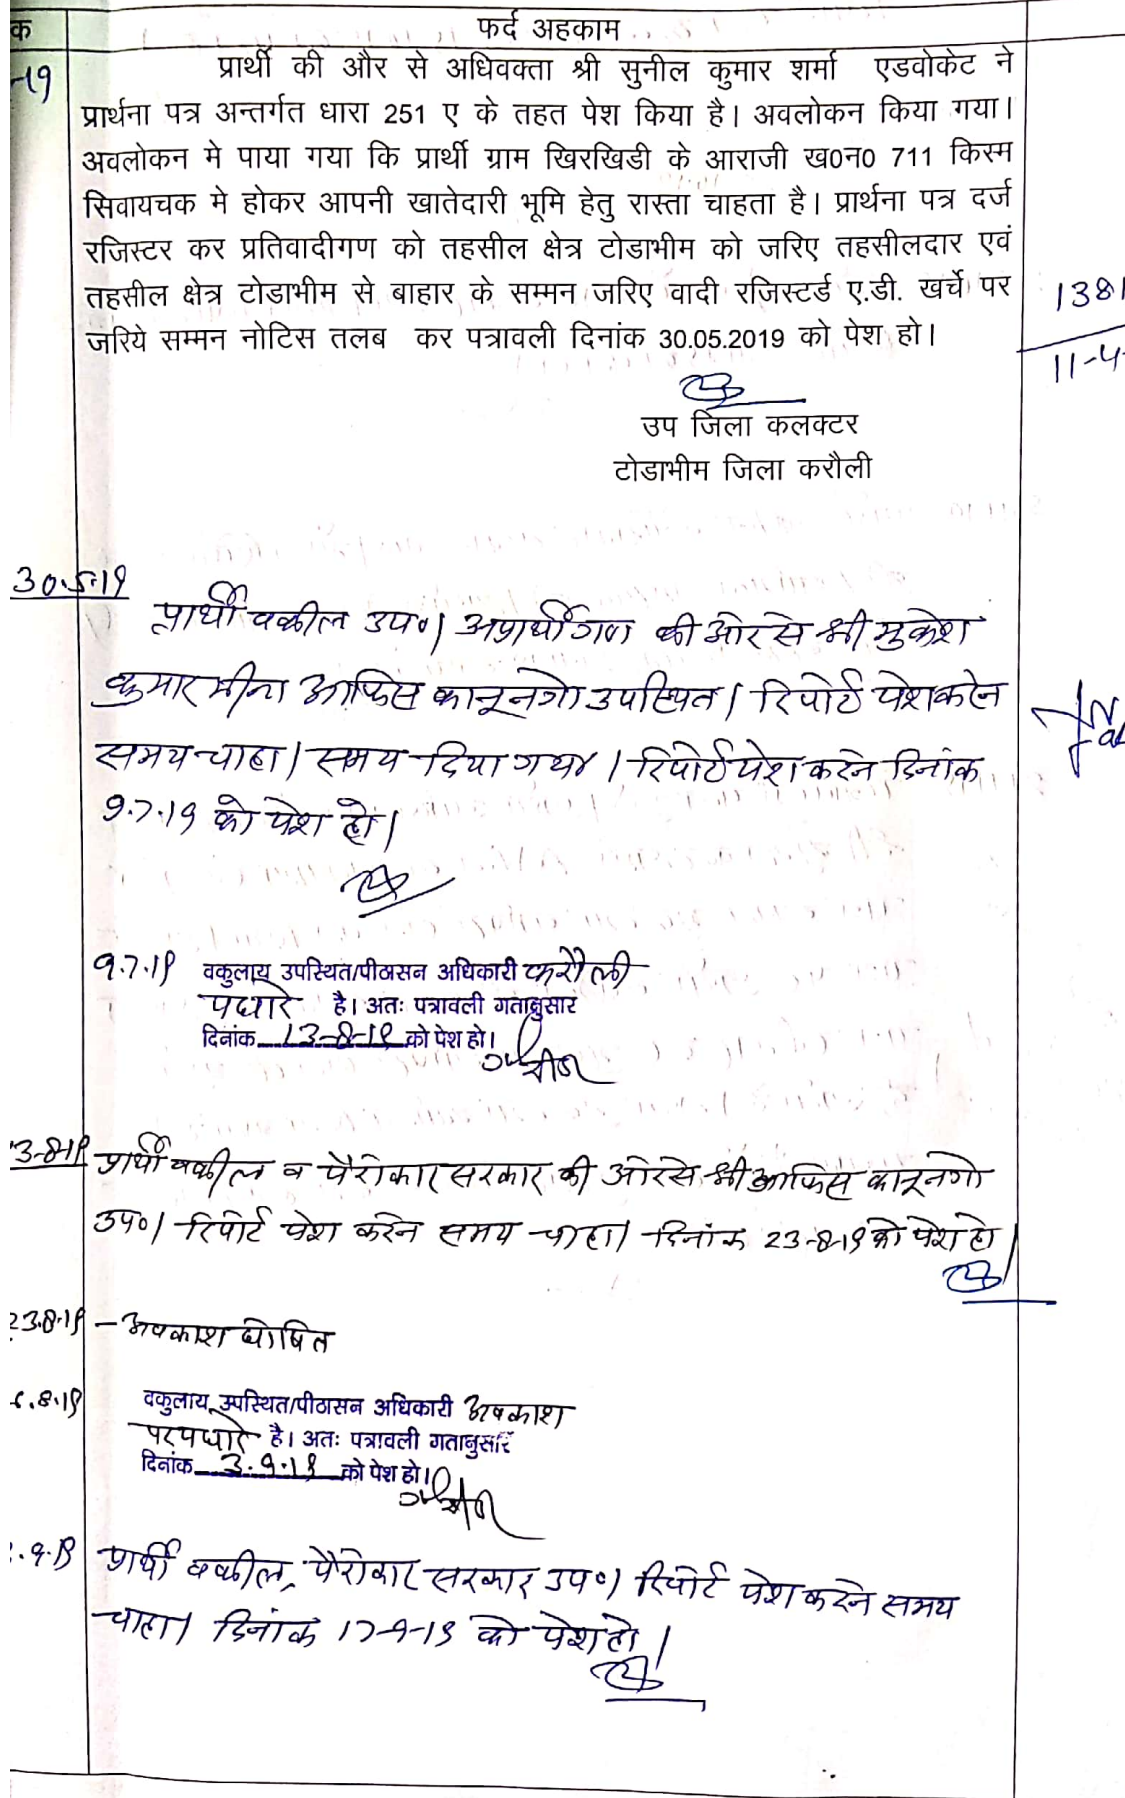 क
फर्द अहकाम
-19
प्रार्थी की और से अधिवक्ता श्री सुनील कुमार शर्मा एडवोकेट ने
प्रार्थना पत्र अन्तर्गत धारा 251 ए के तहत पेश किया है। अवलोकन किया गया।
अवलोकन मे पाया गया कि प्रार्थी ग्राम खिरखिडी के आराजी ख0न0 711 किस्म
सिवायचक मे होकर आपनी खातेदारी भूमि हेतु रास्ता चाहता है। प्रार्थना पत्र दर्ज
रजिस्टर कर प्रतिवादीगण को तहसील क्षेत्र टोडाभीम को जरिए तहसीलदार एवं
तहसील क्षेत्र टोडाभीम से बाहार के सम्मन जरिए वादी रजिस्टर्ड ए.डी. खर्चे पर
1381
जरिये सम्मन नोटिस तलब कर पत्रावली दिनांक 30.05.2019 को पेश हो।
11-4-
उप जिला कलक्टर
टोडाभीम जिला करौली
30.5.19
प्रार्थी वकील उप०। अप्रार्थीगण की ओर से श्री मुकेश
कुमार मीना आफिस कानूनगो उपस्थित। रिपोर्ट पेश करने
समय चाहा। समय दिया गया। रिपोर्ट पेश करने दिनांक
9.7.19 को पेश हो।
9.7.19 वकुलाय उपस्थित/पीठासन अधिकारी करौली
पधारे है। अतः पत्रावली गतानुसार
दिनांक 13-8-19 को पेश हो।
13-8-19 प्रार्थी वकील व पैरोकार सरकार की ओर से श्री आफिस कानूनगो
उप०। रिपोर्ट पेश करने समय चाहा। दिनांक 23-8-19 को पेश हो।
23.8.19 – अवकाश घोषित
6.8.19 वकुलाय उपस्थित/पीठासन अधिकारी अवकाश
पर पधारे है। अतः पत्रावली गतानुसार
दिनांक 3.9.19 को पेश हो।
.9.19 प्रार्थी वकील, पैरोकार सरकार उप०। रिपोर्ट पेश करने समय
चाहा। दिनांक 17-9-19 को पेश हो।